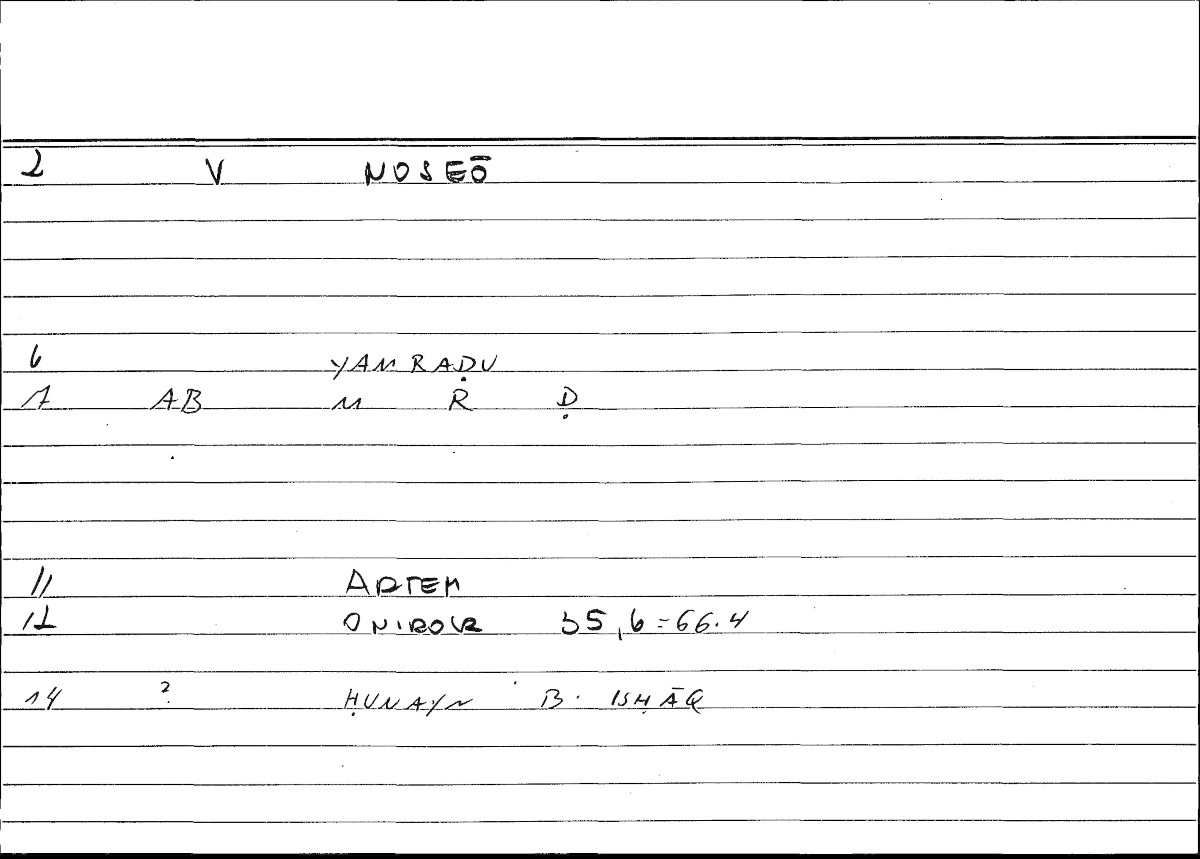 2 V NOSEŌ
6 YAMRAḌU
7 AB M R Ḍ
11 ARTEM
12 ONIROCR 35,6=66.4
14 ? ḤUNAYN B. ISḤĀQ